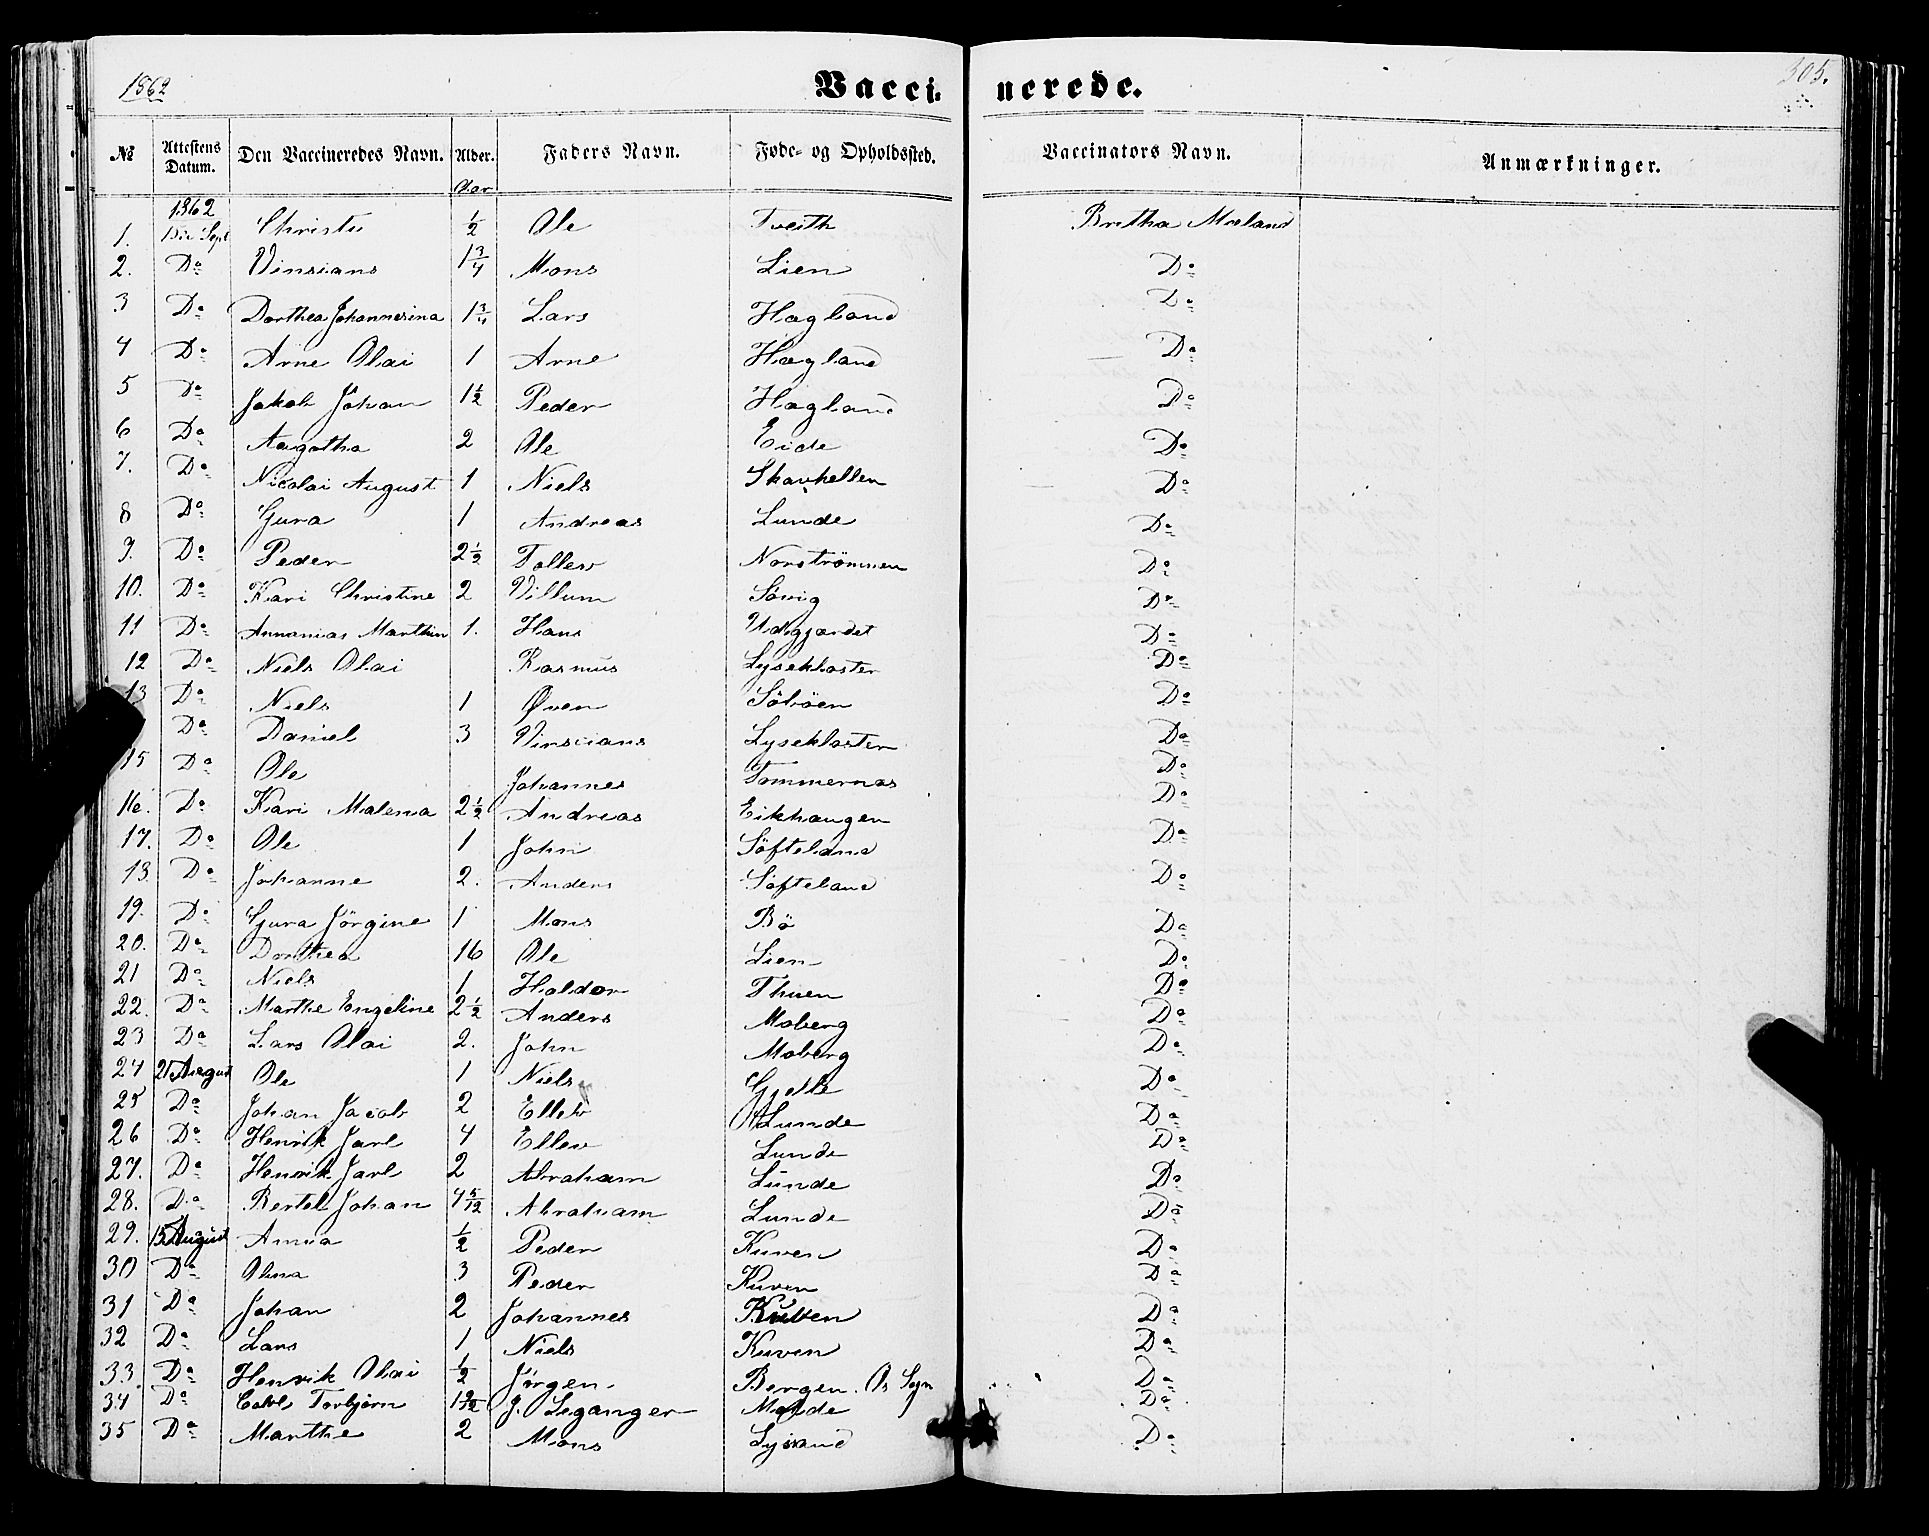 1862 Vaccinerede. 305.
№ Attestens Datum. Den Vaccineredes Navn. Alder. Faders Navn. Føde- og Opholdssted. Vaccinators Navn. Anmærkninger.
Aar
1862
1. Sept Christie ½ Ole Tveith Britha Moland
2. Do Vinsians 1¾ Mons Lien Do
3 Do Dorthea Johannesina 1¾ Lars Hagland Do
4 Do Arne Olai 1 Arne Hagland Do
5 Do Jakob Johan 1½ Peder Hagland Do
6 Do Aagotha 2 Ole Eide Do
7. Do Nicolai August 1 Niels Skavhellen Do
8 Do Gura 1 Andreas Lunde Do
9. Do Peder 2½ Tollew Norströmmen Do
10. Do Kari Christine 2 Villum Sövig Do
11 Do Annanias Marthin 1. Hans Udigjærdet Do
12 Do Niels Olai Rasmus Lysekloster Do
13 Do Niels 1 Øven Söböen Do
Do Daniel 3 Vinsians Lysekloster Do
15 Do Ole Johannes Tømmernæs Do
16. Do Kari Malena 2½ Andreas Eikhaugen Do
17. Do Ole 1 John Söfteland Do
18. Do Johanne 2. Anders Söfteland Do
19. Do Gura Jörgine 1 Mons Bö Do
20. Do Dorthea 16 Ole Lien Do
21 Do Niels 1 Haldor Thuen Do
22. Do Marthe Engeline 2½ Anders Moberg Do
23 Do Lars Olai 2. John Moberg Do
24 21 August Ole 1 Niels Do
25 Do Johan Jacob 2 Ellew Lunde Do
26 Do Henrik Jarl 4 Ellew Lunde Do
27. Do Henrik Jarl 2 Abraham Lunde Do
28. Do Bertel Johan 4 5/12 Abraham Lunde Do
29. 15 August Anna ½ Peder Kuven Do
30 Do Olina 3 Peder Kuven Do
31 Do Johan 2 Johannes Kuven Do
32 Do Lars 1 Niels Kuven Do
33. Do Henrik Olai ½ Jörgen. Bergen. Os Sogn Do
34. Do Torbjørn J. Leganger Do
35 Do Marthe 2 Mons Lysand Do